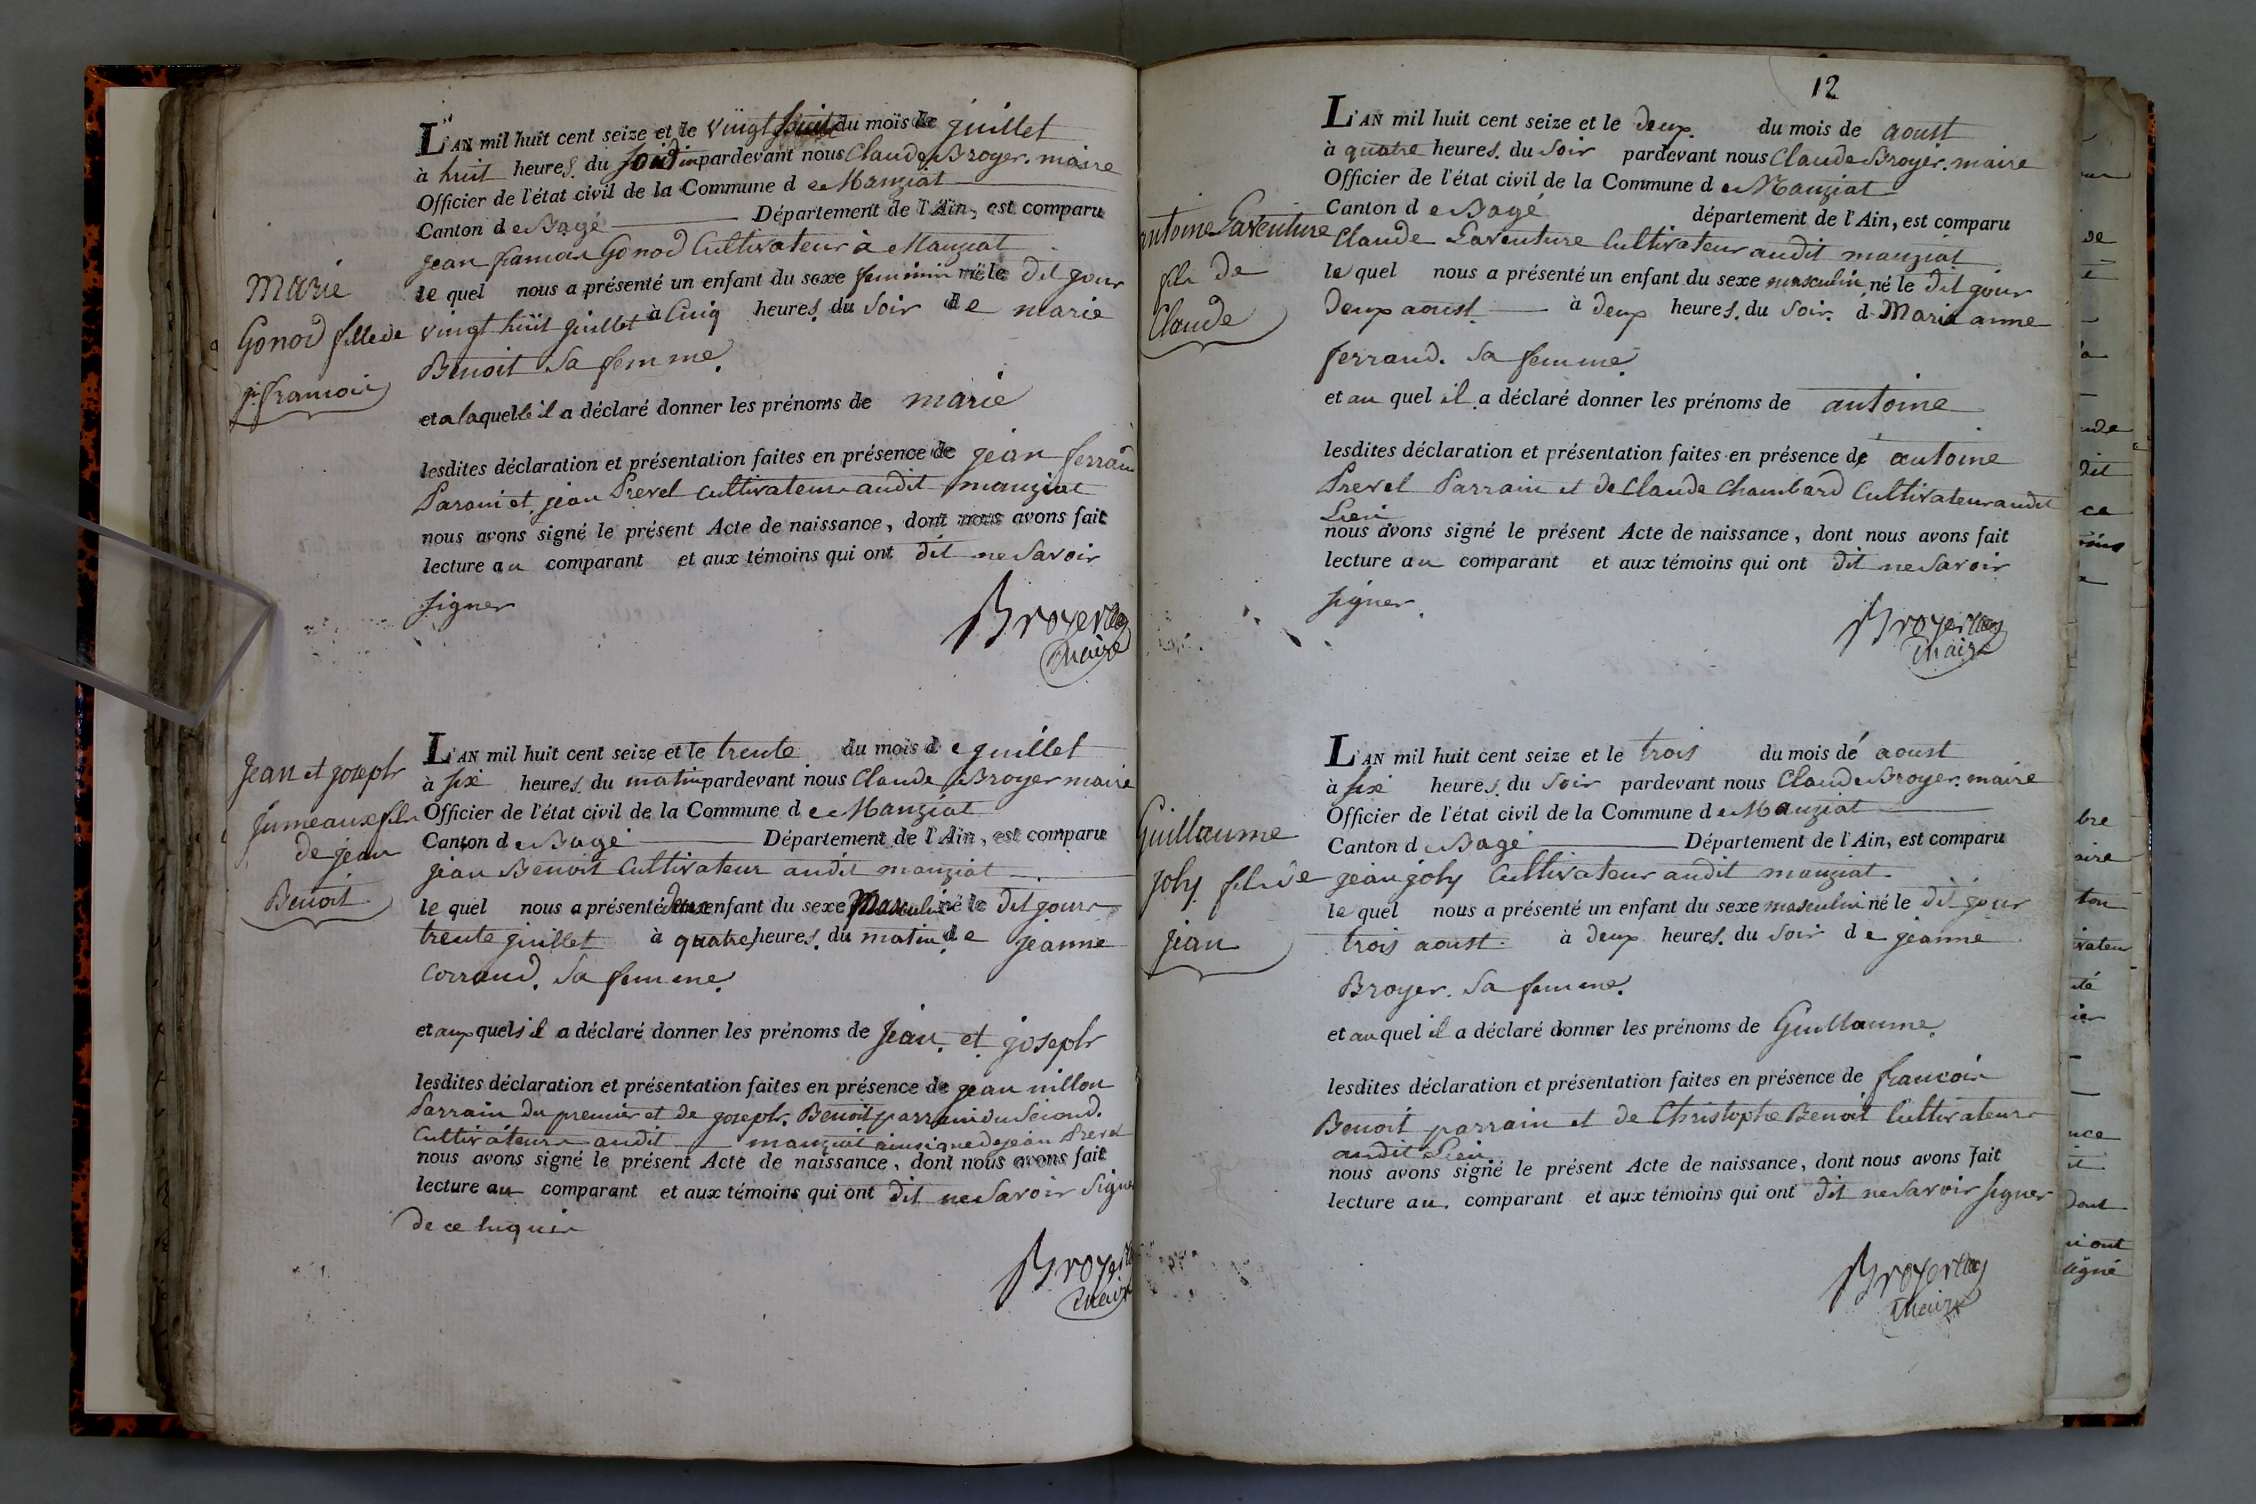 Marie
Gonod fille de
jn françois
L'AN mil huit cent seize et le vingt huit du mois de juillet
à huit heures du soir pardevant nous Claude Broyer. maire
Officier de l'état civil de la Commune de Manziat
Canton de Bagé Département de l'Ain, est comparu
jean francois Gonod Cultivateur à Manziat
le quel nous a présenté un enfant du sexe feminin né le dit jour
vingt huit juillet à Cinq heures. du Soir de marie
Benoit Sa femme.
et a laquelle il a déclaré donner les prénoms de marie
lesdites déclaration et présentation faites en présence de jean ferrand
Parain et jean Prevel cultivateurs audit manziat
nous avons signé le présent Acte de naissance, dont nous avons fait
lecture au comparant et aux témoins qui ont dit ne Savoir
signer
Broyer
Maire
Jean et joseph
jumeaux fils
de jean
Benoit
L'AN mil huit cent seize et le trente du mois de juillet
à six heures. du matin pardevant nous Claude Broyer maire
Officier de l'état civil de la Commune de Manziat
Canton de Bagé Département de l'Ain, est comparu
jean Benoit Cultivateur audit manziat
le quel nous a présenté deux enfant du sexe Masculin né le Dit jour
trente juillet à quatre heures. du matin de jeanne
Corrand. Sa femme.
et aux quels il a déclaré donner les prénoms de Jean. et joseph
lesdites déclaration et présentation faites en présence de jean nillon
Parrain du premier et de joseph. Benoit parrain du Second.
Cultivateurs audit manziat ainsi que de jean Prevel
nous avons signé le présent Acte de naissance, dont nous avons fait
lecture au comparant et aux témoins qui ont dit ne Savoir Signer
de ce enquis
Broyer
Maire
12
antoine Laventure
fils de
Claude
L'AN mil huit cent seize et le deux. du mois de aoust
à quatre heures. du Soir pardevant nous Claude Broyer. maire
Officier de l'état civil de la Commune de Manziat
Canton de Bagé département de l'Ain, est comparu
Claude Laventure Cultivateur audit manziat
le quel nous a présenté un enfant du sexe masculin né le Dit jour
Deux aoust. à deux heures. du Soir. d. Marie anne
ferrand. Sa femme.
et au quel il a déclaré donner les prénoms de antoine
lesdites déclaration et présentation faites en présence de antoine
Prevel Parrain et de Claude Chambard Cultivateurs audit
Lieu
nous avons signé le présent Acte de naissance, dont nous avons fait
lecture au comparant et aux témoins qui ont dit ne Savoir
signer.
Broyer
Maire
Guillaume
joly fils de
jean
L'AN mil huit cent seize et le trois du mois de aoust
à six heures. du Soir pardevant nous Claude Broyer. maire
Officier de l'état civil de la Commune de Manziat
Canton de Bagé Département de l'Ain, est comparu
jean joly Cultivateur audit manziat.
le quel nous a présenté un enfant du sexe masculin né le dit jour
trois aoust. à deux heures. du Soir de jeanne
Broyer. Sa femme.
et au quel il a déclaré donner les prénoms de Guillaume.
lesdites déclaration et présentation faites en présence de francois
Benoit parrain et de Christophe Benoit Cultivateurs
audit Lieu
nous avons signé le présent Acte de naissance, dont nous avons fait
lecture au. comparant et aux témoins qui ont dit ne Savoir signer
Broyer
Maire